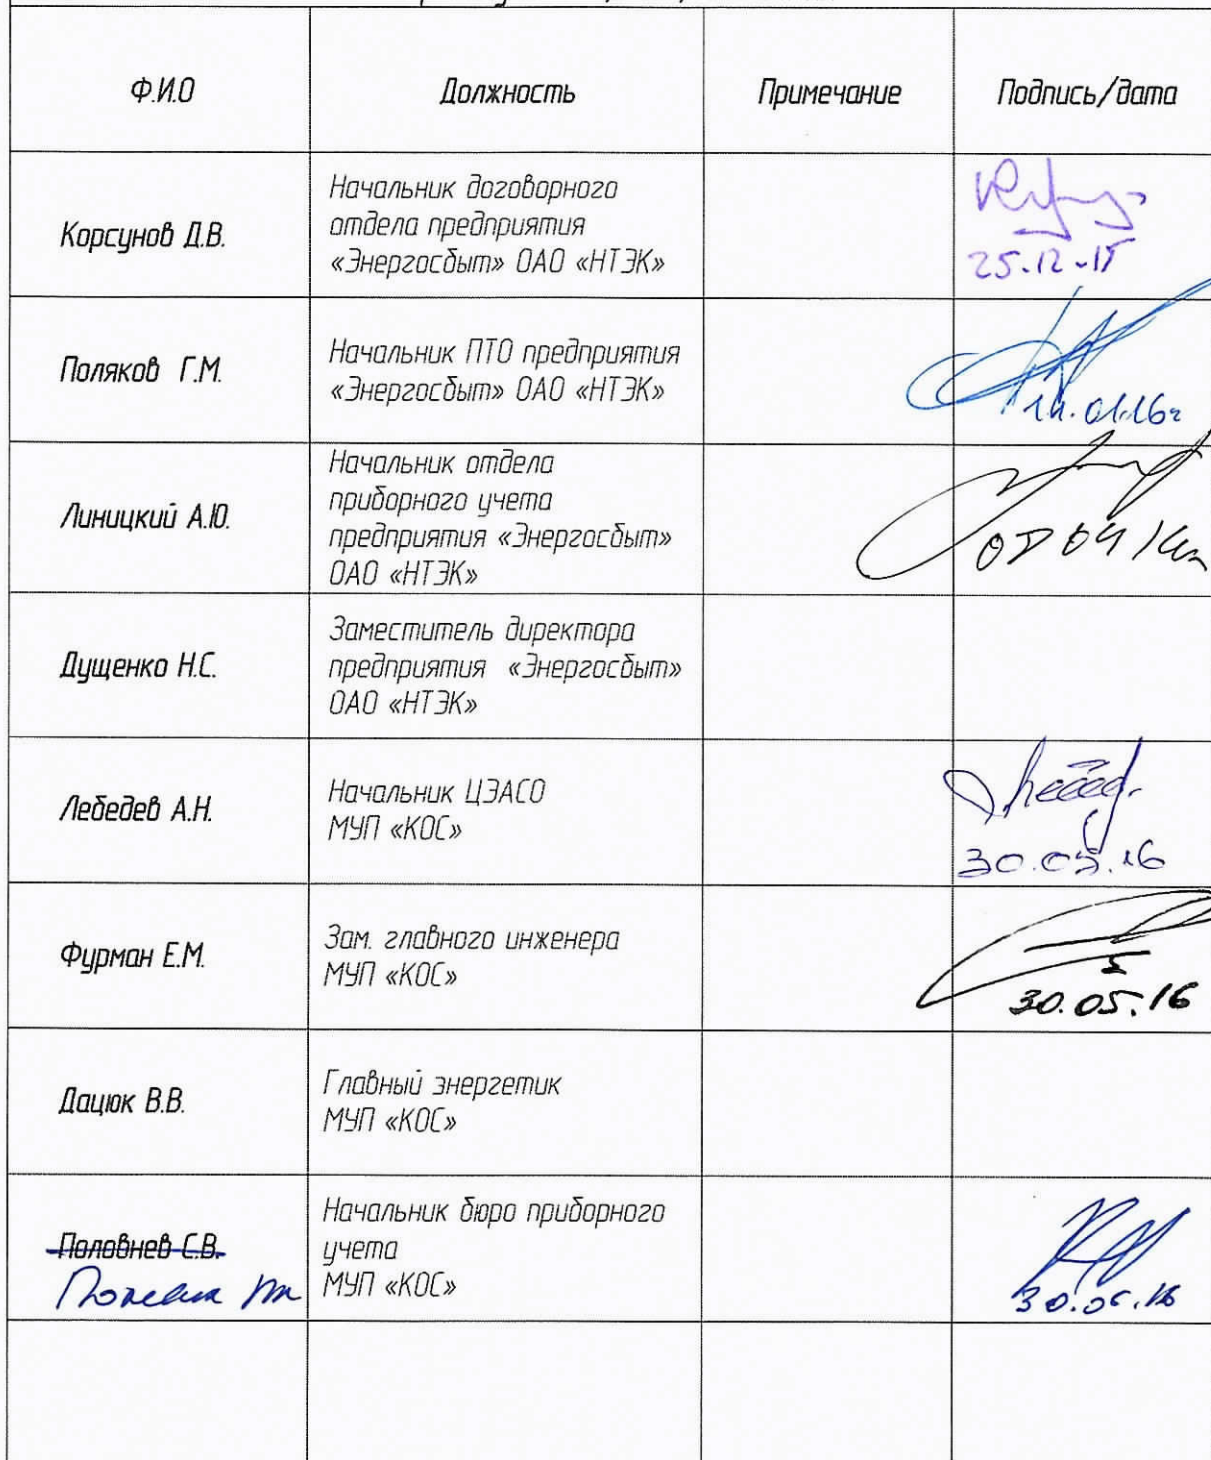 Ф.И.О Должность Примечание Подпись/дата
Корсунов Д.В.
Начальник договорного
отдела предприятия
«Энергосбыт» ОАО «НТЭК»
25.12.15
Поляков Г.М.
Начальник ПТО предприятия
«Энергосбыт» ОАО «НТЭК»
14.01.16г
Линицкий А.Ю.
Начальник отдела
приборного учета
предприятия «Энергосбыт»
ОАО «НТЭК»
Дущенко Н.С.
Заместитель директора
предприятия «Энергосбыт»
ОАО «НТЭК»
Лебедев А.Н.
Начальник ЦЭАСО
МУП «КОС»
30.05.16
Фурман Е.М.
Зам. главного инженера
МУП «КОС»
30.05.16
Дацюк В.В.
Главный энергетик
МУП «КОС»
Половнев С.В.
Начальник бюро приборного
учета
МУП «КОС»
30.05.16